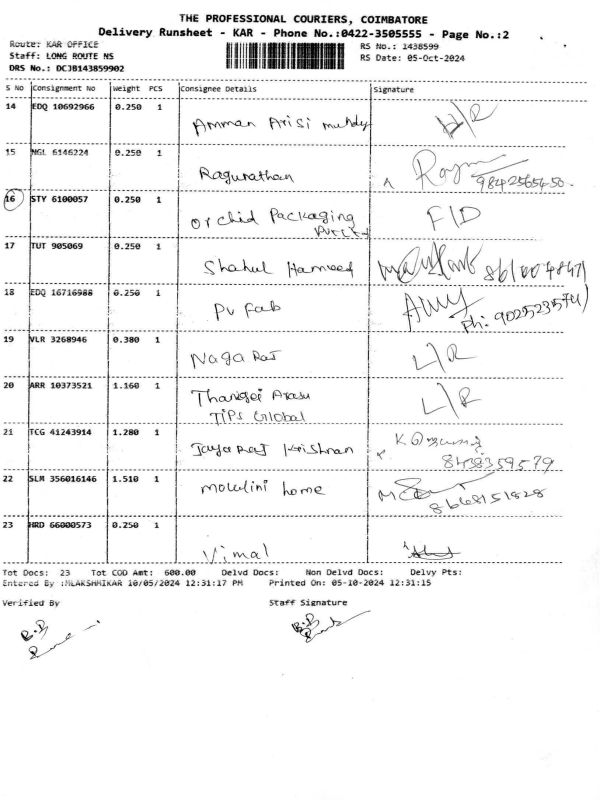 THE PROFESSIONAL COURIERS, COIMBATORE
Delivery Runsheet - KAR - Phone No.:0422-3505555 - Page No.:2
Route: KAR OFFICE
RS No.: 1438599
Staff: LONG ROUTE NS
RS Date: 05-Oct-2024
DRS No.: DCJB143859902
S No Consignment No Weight PCS Consignee Details Signature
14 EDQ 10692966 0.250 1
Amman Arisi H/R
15 NGL 6146224 0.250 1
Ragunathan
9842565450
16 STY 6100057 0.250 1
Orchid Packaging F/D
Pvt Ltd
17 TUT 905069 0.250 1
Shahul Hameed
18 EDQ 16716988 0.250 1
Pv Fab
Ph: 9025235741
19 VLR 3268946 0.380 1
Nagaraj L/R
20 ARR 10373521 1.160 1
Thangei Arasu L/R
TIPS Global
21 TCG 41243914 1.280 1
Jayaraj Krishnan
8438359579
22 SLM 356016146 1.510 1
home
8668151828
23 HRD 66000573 0.250 1
Vimal
Tot Docs: 23 Tot COD Amt: 600.00 Delvd Docs: Non Delvd Docs: Delvy Pts:
Entered By :MLAKSHMIKAR 10/05/2024 12:31:17 PM Printed On: 05-10-2024 12:31:15
Verified By Staff Signature